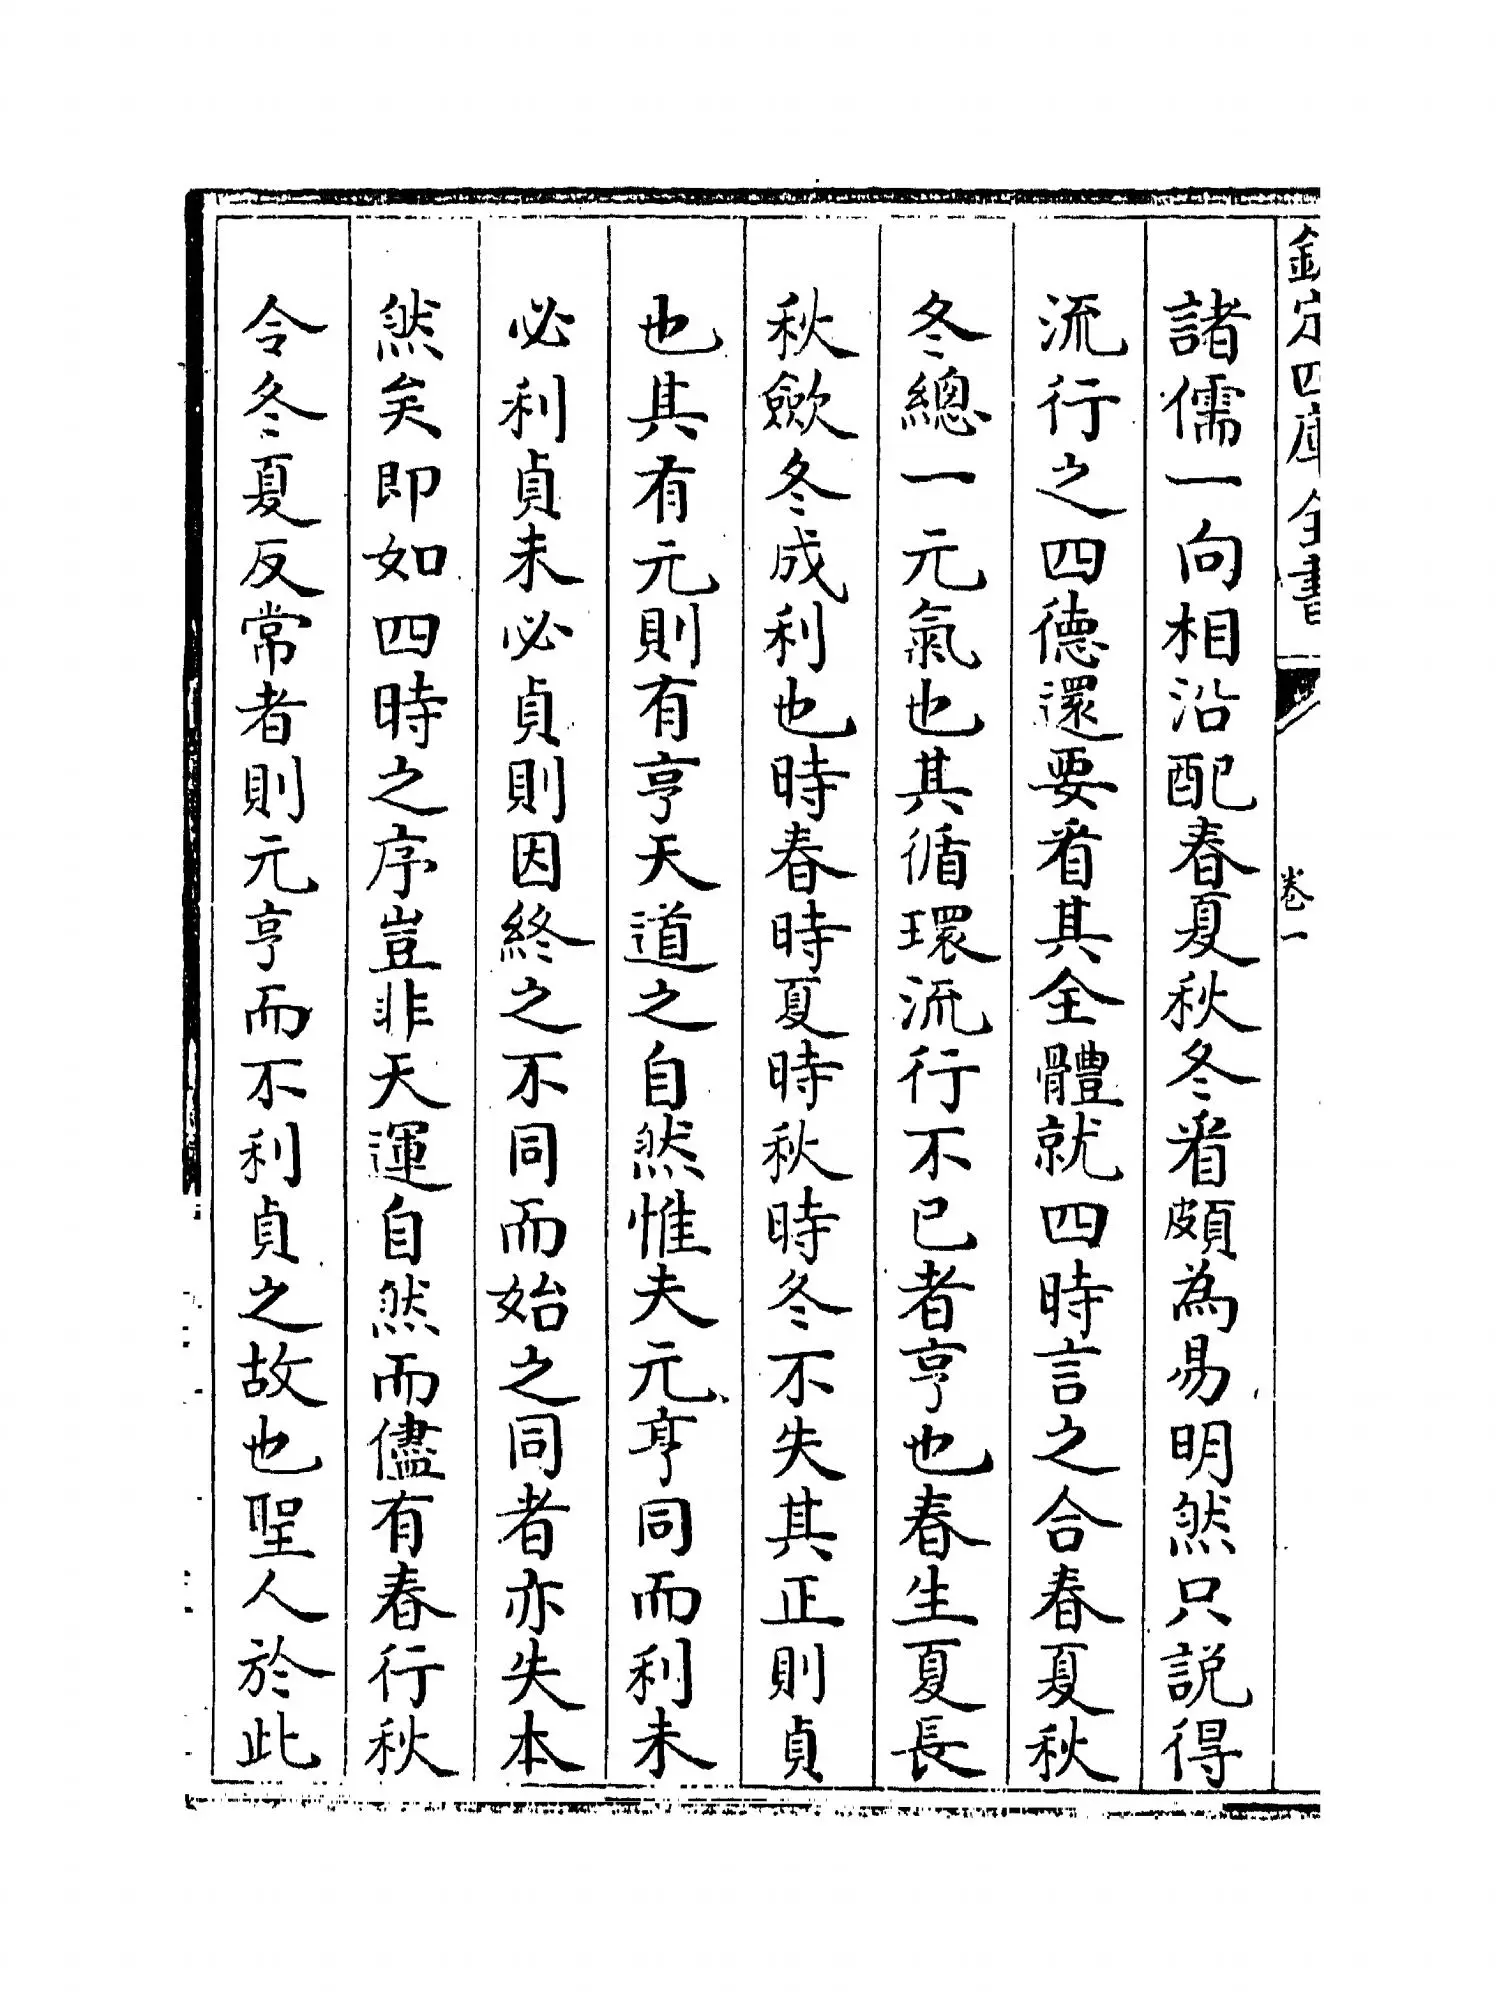 欽定四庫全書
卷一
諸儒一向相沿配春夏秋冬看頗為易明然只説得
流行之四德還要看其全體就四時言之合春夏秋
冬總一元氣也其循環流行不已者亨也春生夏長
秋歛冬成利也時春時夏時秋時冬不失其正則貞
也其有元則有亨天道之自然惟夫元亨同而利未
必利貞未必貞則因終之不同而始之同者亦失本
然矣即如四時之序豈非天運自然而儘有春行秋
令冬夏反常者則元亨而不利貞之故也聖人於此